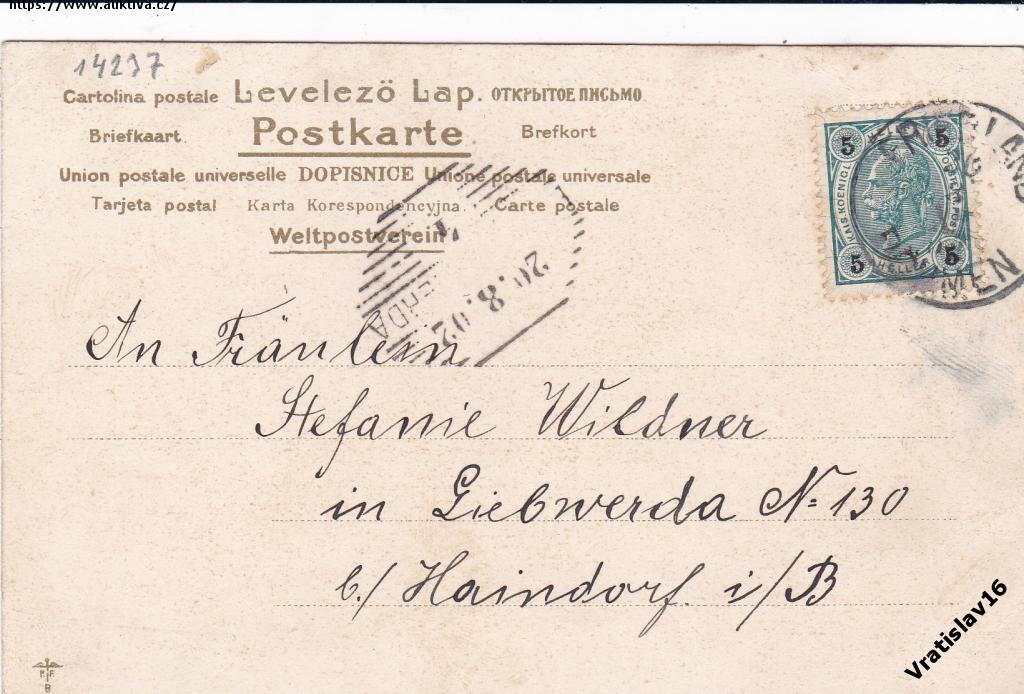 https://www.auktiva.cz/
14237
Cartolina postale Levelezö Lap. ОТКРЫТОЕ ПИСЬМО
Briefkaart. Postkarte Brefkort
Union postale universelle DOPISNICE Unione postale universale
Tarjeta postal Karta Korespondencyjna. Carte postale
Weltpostverein
5 5
KAIS. KOENIGL.
5 5
HELLER
FRIEDLAND
20.8.02
An Fräulein
Stefanie Wildner
in Liebwerda N= 130
b./ Haindorf. i/B
P. F.
B
Vratislav16